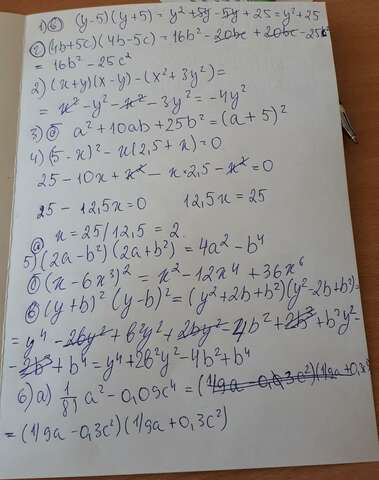 1) б) (y-5)(y+5) = y² + 5y - 5y + 25 = y² + 25
2) (4b+5c)(4b-5c) = 16b² - 20bc + 20bc - 25c²
= 16b² - 25c²
2) (x+y)(x-y) - (x²+3y²) =
= x² - y² - x² - 3y² = -4y²
3) б) a² + 10ab + 25b² = (a+5)²
4) (5-x)² - x(2,5+x) = 0
25 - 10x + x² - x·2,5 - x² = 0
25 - 12,5x = 0 12,5x = 25
x = 25/12,5 = 2
5) а) (2a-b²)(2a+b²) = 4a² - b⁴
б) (x-6x³)² = x² - 12x⁴ + 36x⁶
в) (y+b)² (y-b)² = (y²+2b+b²)(y²-2b+b²) =
= y⁴ - 2by² + b²y² + 2by² - 4b² + 2b³ + b²y² -
- 2b³ + b⁴ = y⁴ + 2b²y² - 4b² + b⁴
6) а) 1/81 a² - 0,09c⁴ = (1/9a - 0,03c²)(1/9a + 0,3c²)
= (1/9a - 0,3c²)(1/9a + 0,3c²)